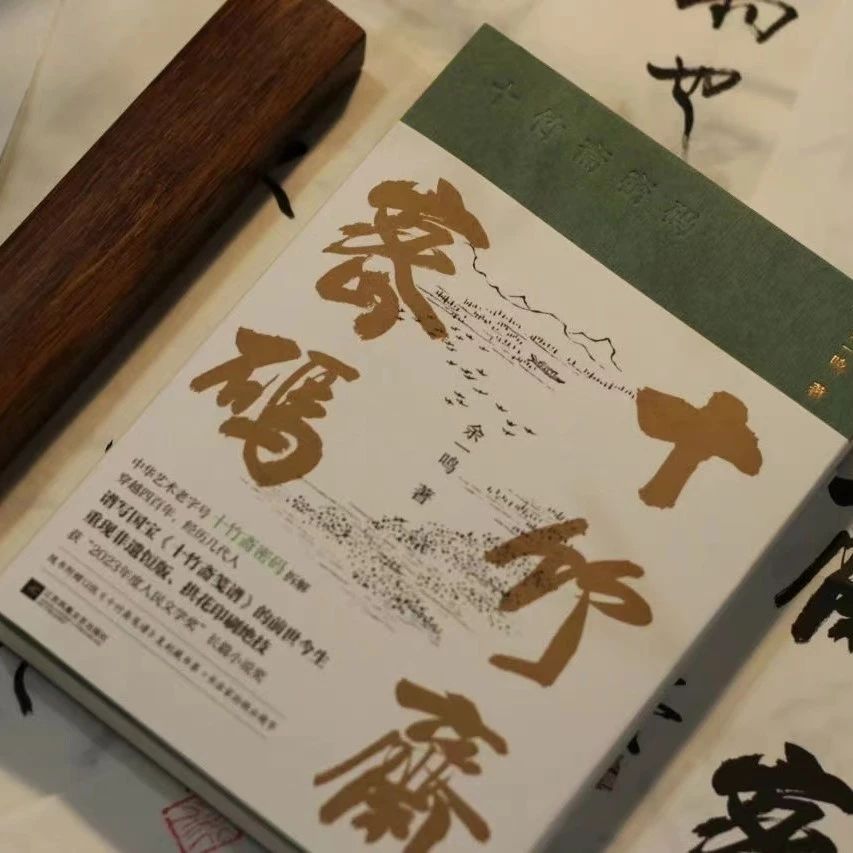 如
十竹斋密码
一鸣 著
十竹齋
密碼
余一鸣 著
中华艺术老字号 十竹斋密码 拆解
穿越四百年，经历几代人
谱写国宝《十竹斋笺谱》的前世今生
重现非遗饾版、拱花印刷绝技
获“2023年度人民文学奖”长篇小说奖
江苏凤凰文艺出版社